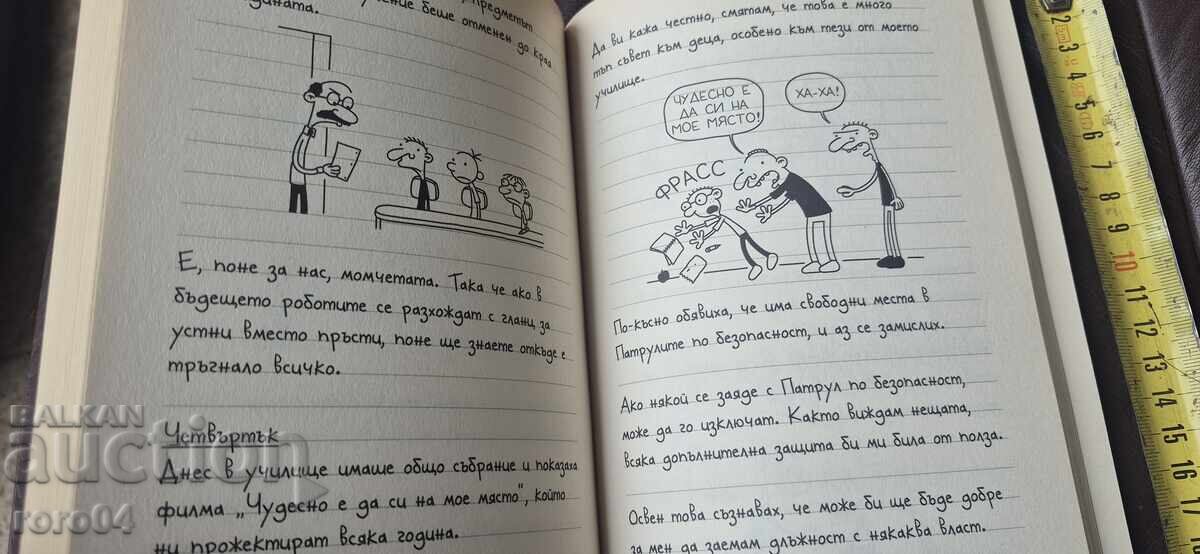 предметът
беше отменен до края
годината.
Е, поне за нас, момчетата. Така че ако в
бъдещето роботите се разхождат с гланц за
устни вместо пръсти, поне ще знаете откъде е
тръгнало всичко.
Четвъртък
Днес в училище имаше общо събрание и показаха
филма „Чудесно е да си на мое място", който
ни прожектират всяка година.
Да ви кажа честно, смятам, че това е много
тъп съвет към деца, особено към тези от моето
училище.
ЧУДЕСНО Е
ДА СИ НА
МОЕ МЯСТО!
ХА-ХА!
ФРАСС
По-късно обявиха, че има свободни места в
Патрулите по безопасност, и аз се замислих.
Ако някой се заяде с Патрул по безопасност,
може да го изключат. Както виждам нещата,
всяка допълнителна защита би ми била от полза.
Освен това съзнавах, че може би ще бъде добре
за мен да заемам длъжност с някаква власт.
2
3
4
5
6
7
8
9
10
11
12
13
14
15
16
17
BALKAN
auction
roro04